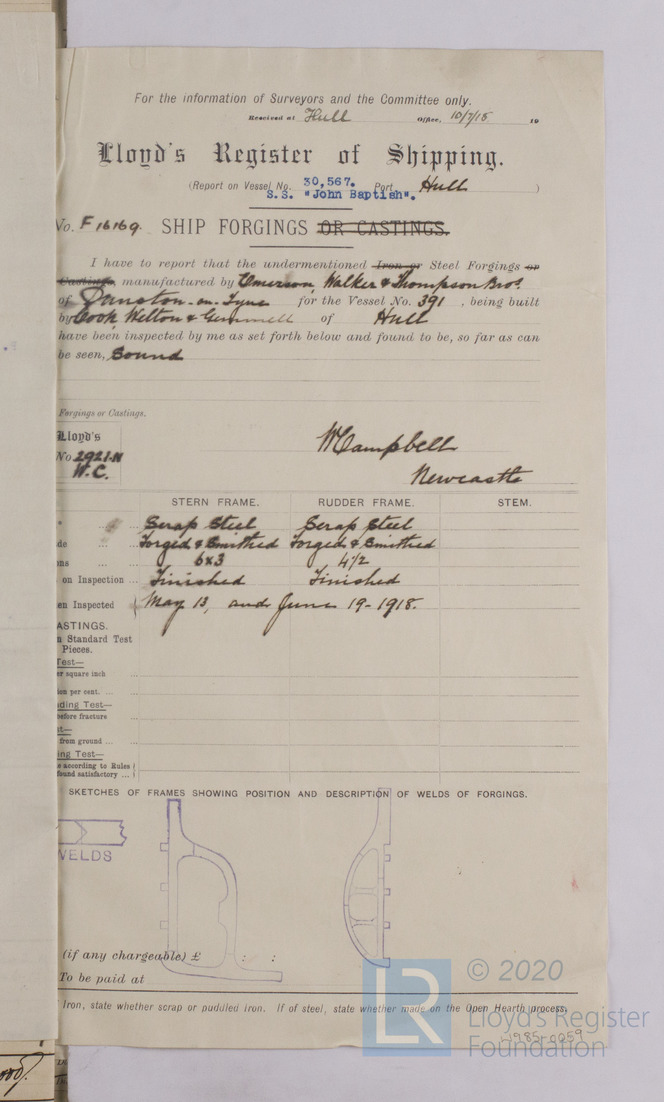 For the information of Surveyors and the Committee only.
Received at Hull Office, 10/7/18 19
Lloyd's Register of Shipping.
(Report on Vessel No. 30,567. Port Hull )
S.S. "John Baptish".
No. F 16169. SHIP FORGINGS OR CASTINGS.
I have to report that the undermentioned Iron or Steel Forgings or
Castings, manufactured by Emerson, Walker & Thompson Bros.
of Dunston-on-Tyne for the Vessel No. 391, being built
by Cook, Welton & Gemmell of Hull
have been inspected by me as set forth below and found to be, so far as can
be seen, Sound
Forgings or Castings.
Lloyd's
No 2921-N
W.C.
W Campbell
Newcastle
STERN FRAME. RUDDER FRAME. STEM.
Scrap Steel Scrap Steel
de Forged & Smithed Forged & Smithed
ons 6x3 4 1/2
on Inspection Finished Finished
en Inspected May 13, and June 19-1918.
ASTINGS.
n Standard Test
Pieces.
Test—
er square inch
ion per cent.
ding Test—
before fracture
st—
from ground
ing Test—
e according to Rules
found satisfactory
SKETCHES OF FRAMES SHOWING POSITION AND DESCRIPTION OF WELDS OF FORGINGS.
WELDS
(if any chargeable) £ : :
To be paid at
Iron, state whether scrap or puddled iron. If of steel, state whether made on the Open Hearth process.
LR © 2020
Lloyd's Register
Foundation
W985-0059